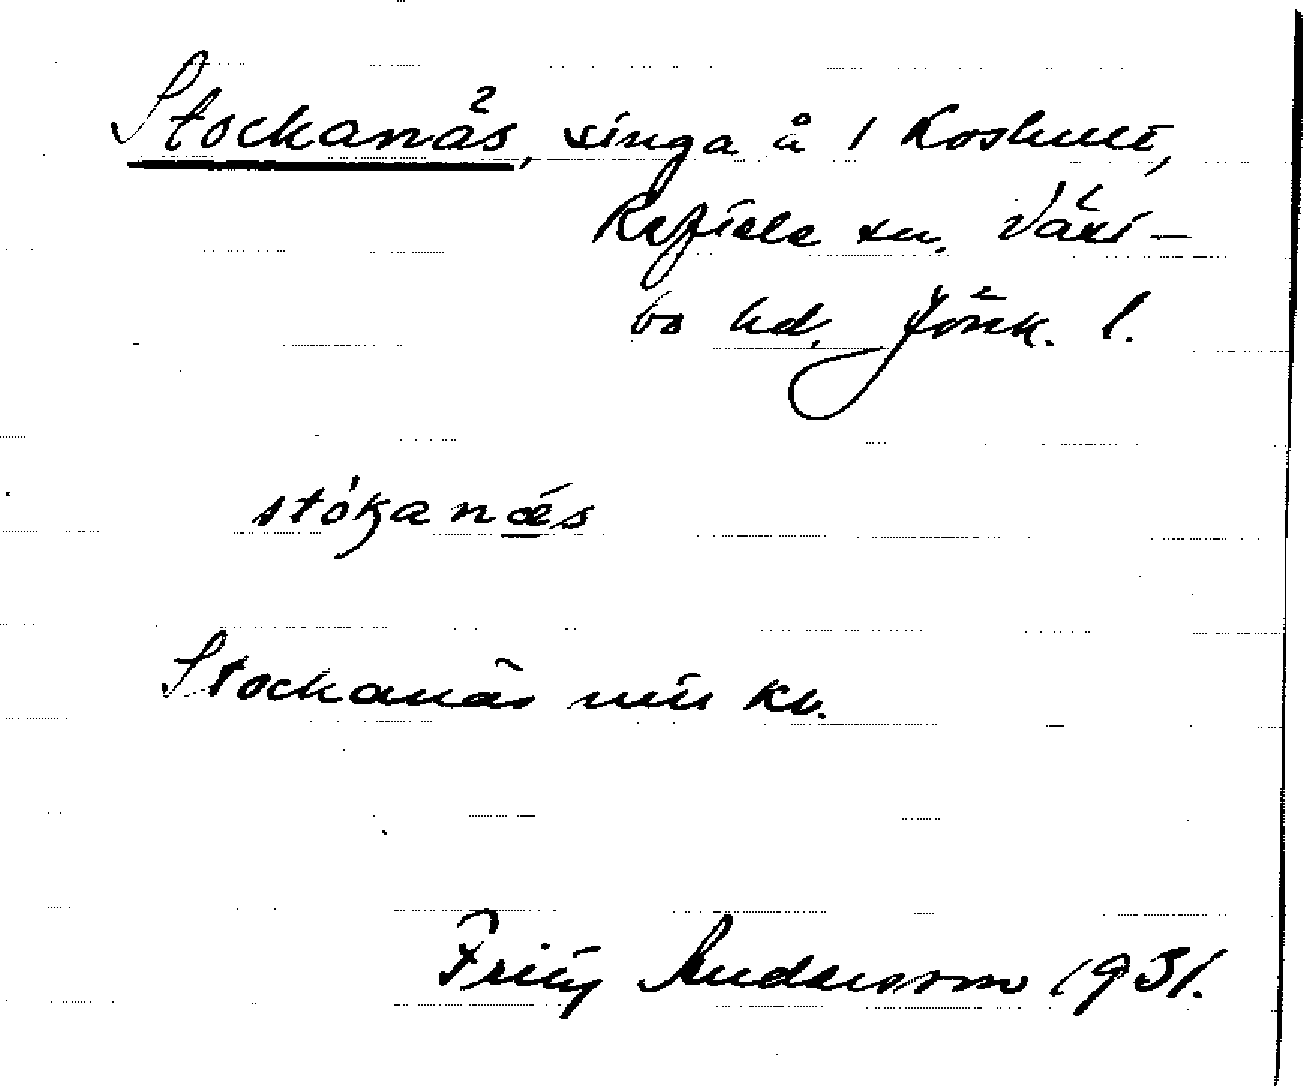 Stockanäs, äng å 1 Koshult,
Reftele sn, Väst-
bo hd, Jönk. l.
stókanæ̀s
Stockanäs
Fritz Andersson 1931.